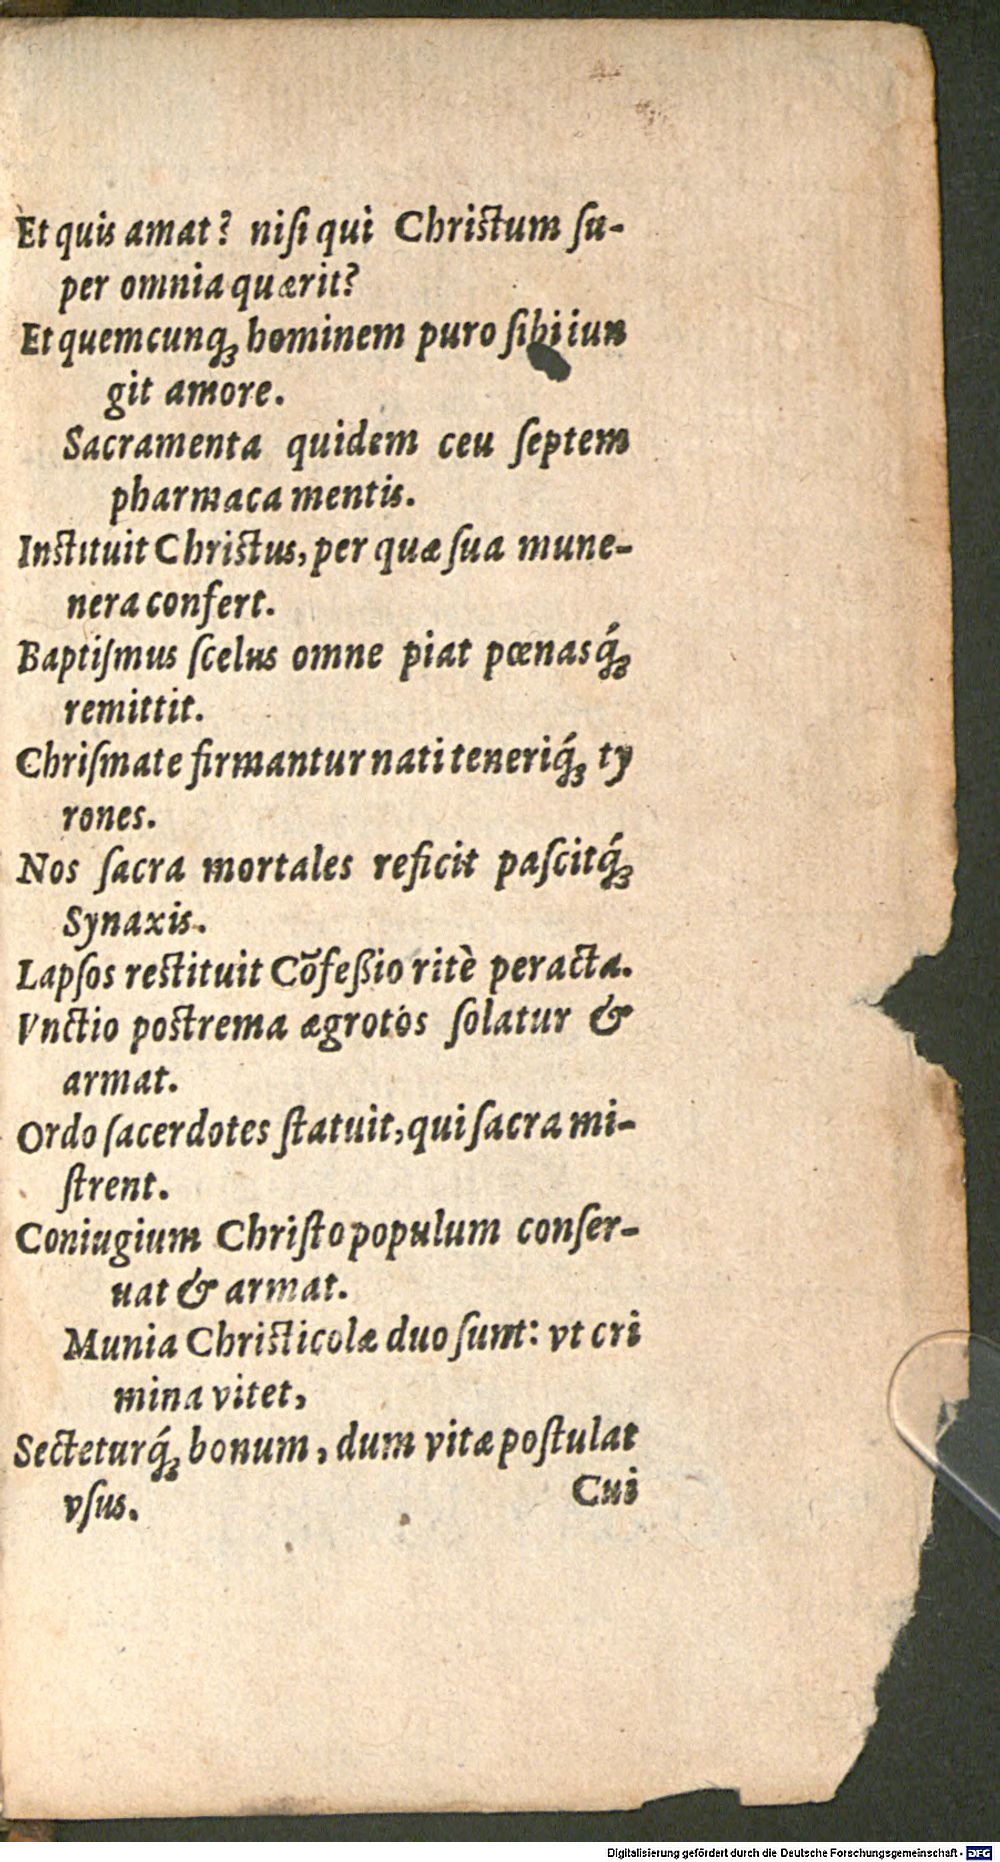 Et quis amat? niſi qui Chriſtum ſu-
per omnia quærit?
Et quemcunqꝫ hominem puro ſibi iun
git amore.
Sacramenta quidem ceu ſeptem
pharmaca mentis.
Inſtituit Chriſtus, per quæ ſua mune-
nera confert.
Baptiſmus ſcelus omne piat pœnasq́ꝫ
remittit.
Chriſmate firmantur nati teneriq́ꝫ ty
rones.
Nos ſacra mortales reficit paſcitq́ꝫ
Synaxis.
Lapſos reſtituit Cõfeßio ritè peracta.
Vnctio poſtrema ægrotos ſolatur &
armat.
Ordo ſacerdotes ſtatuit, qui ſacra mi-
ſtrent.
Coniugium Chriſto populum conſer-
uat & armat.
Munia Chriſticolæ duo ſunt: vt cri
mina vitet,
Secteturq́ꝫ bonum, dum vitæ poſtulat
vſus.
Cui
Digitalisierung gefördert durch die Deutsche Forschungsgemeinschaft - DFG